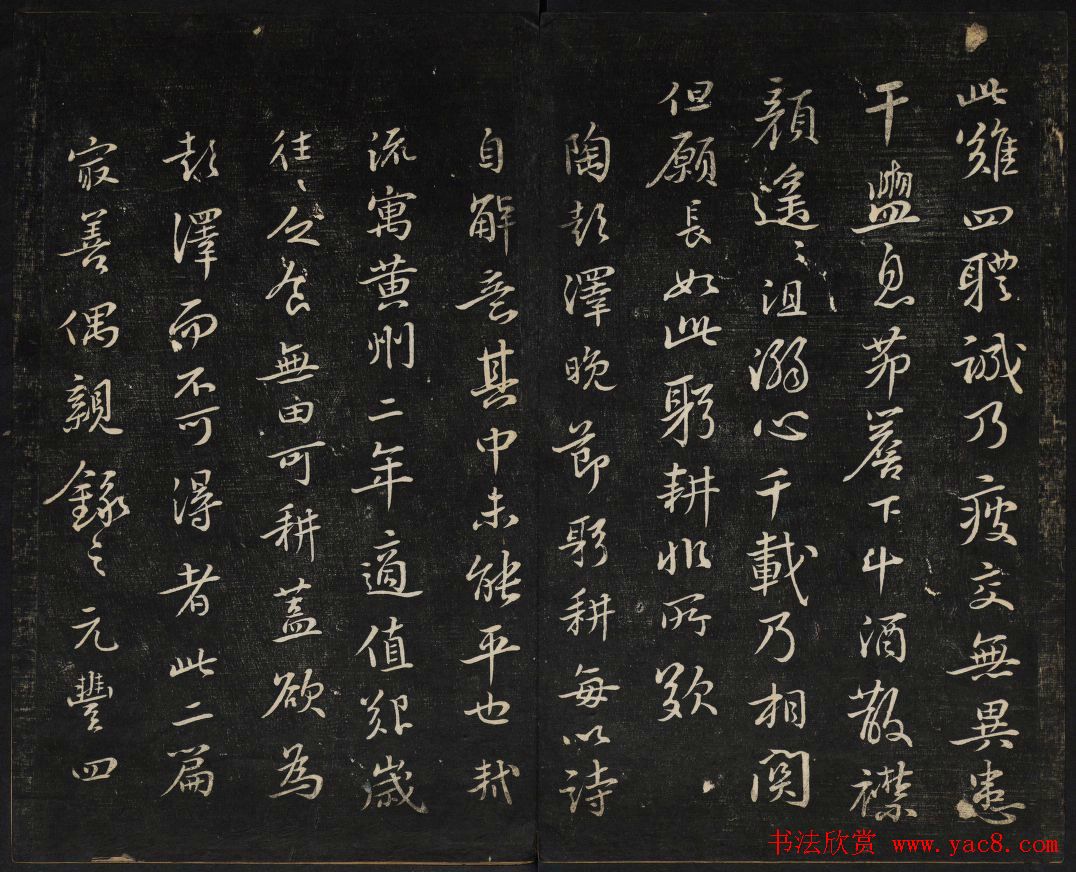 此難四體誠乃疲交無異患
干盥息茆簷下斗酒散襟
顏遙〻沮溺心千載乃相關
但願長如此躬耕非所歎
陶彭澤晚節躬耕每以詩
自解意其中未能平也軾
流寓黃州二年適值艱歲
往〻乏食無田可耕蓋欲為
彭澤而不可得者此二篇
最善偶親錄之元豐四
书法欣赏 www.yac8.com